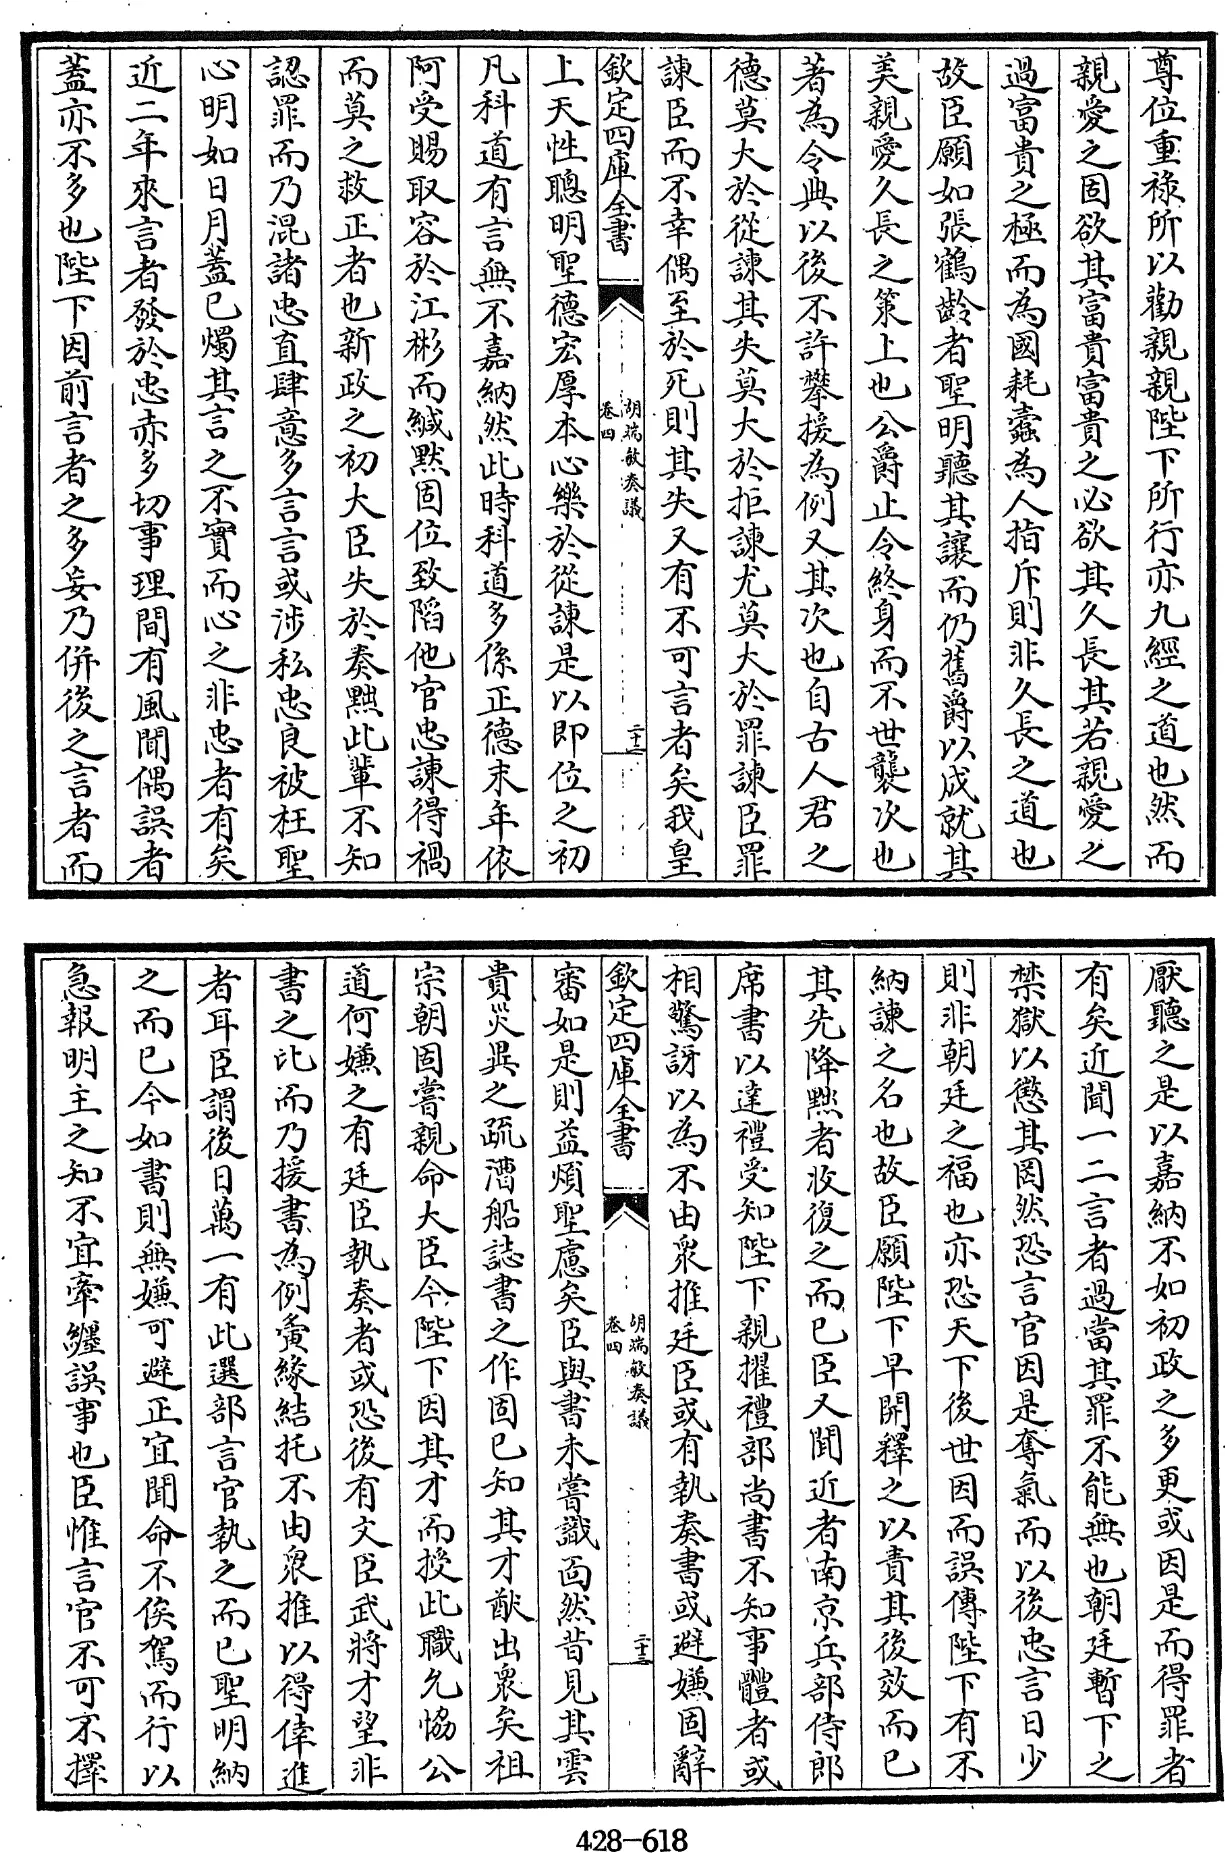 尊位重祿所以勸親親陛下所行亦九經之道也然而
親愛之固欲其富貴富貴之必欲其久長其若親愛之
過富貴之極而為國耗蠹為人指斥則非久長之道也
故臣願如張鶴齡者聖明聽其讓而仍舊爵以成就其
美親愛久長之策上也公爵止令終身而不世襲次也
著為令典以後不許攀援為例又其次也自古人君之
德莫大於從諫其失莫大於拒諫尤莫大於罪諫臣罪
諫臣而不幸偶至於死則其失又有不可言者矣我皇
欽定四庫全書
胡端敏奏議
卷四
二十二
上天性聰明聖德宏厚本心樂於從諫是以即位之初
凡科道有言無不嘉納然此時科道多係正德末年依
阿受賜取容於江彬而緘默固位致陷他官忠諫得禍
而莫之救正者也新政之初大臣失於奏黜此輩不知
認罪而乃混諸忠直肆意多言言或涉私忠良被枉聖
心明如日月蓋已燭其言之不實而心之非忠者有矣
近二年來言者發於忠赤多切事理間有風聞偶誤者
蓋亦不多也陛下因前言者之多妄乃併後之言者而
厭聽之是以嘉納不如初政之多更或因是而得罪者
有矣近聞一二言者過當其罪不能無也朝廷暫下之
禁獄以懲其罔然恐言官因是奪氣而以後忠言日少
則非朝廷之福也亦恐天下後世因而誤傳陛下有不
納諫之名也故臣願陛下早開釋之以責其後效而已
其先降黜者收復之而已臣又聞近者南京兵部侍郎
席書以達禮受知陛下親擢禮部尚書不知事體者或
相驚訝以為不由衆推廷臣或有執奏書或避嫌固辭
欽定四庫全書
胡端敏奏議
卷四
二十三
審如是則益煩聖慮矣臣與書未嘗識面然昔見其雲
貴災異之疏漕船誌書之作固已知其才猷出衆矣祖
宗朝固嘗親命大臣今陛下因其才而授此職允協公
道何嫌之有廷臣執奏者或恐後有文臣武將才望非
書之比而乃援書為例夤緣結托不由衆推以得倖進
者耳臣謂後日萬一有此選部言官執之而已聖明納
之而已今如書則無嫌可避正宜聞命不俟駕而行以
急報明主之知不宜牽纏誤事也臣惟言官不可不擇
428-618